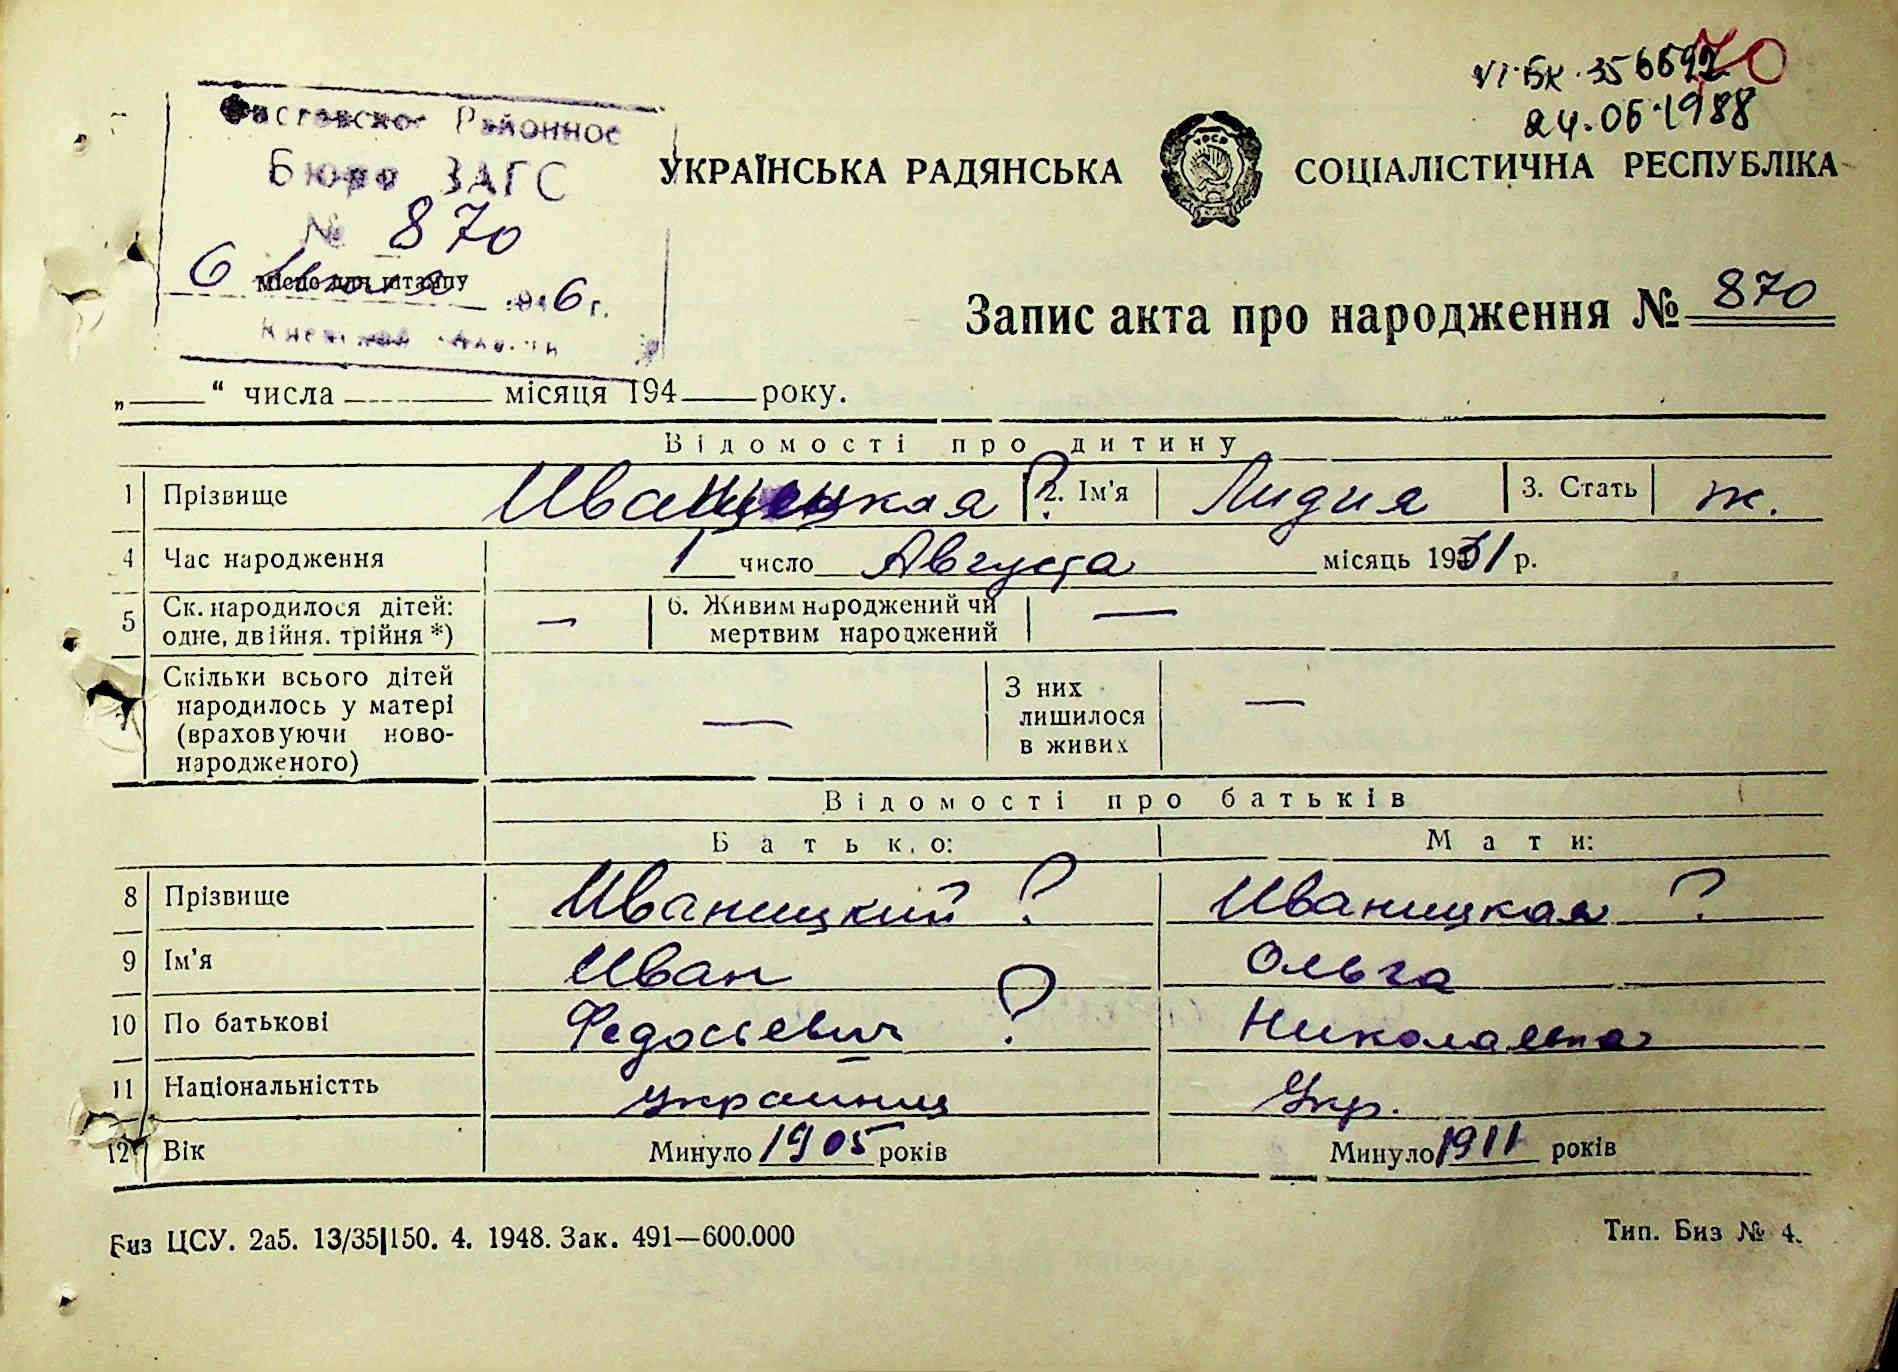 VI-БК 356692
70
24.06.1988
Фастовское Районное
Бюро ЗАГС
№ 870
місце для штампу
6 г.
УКРАЇНСЬКА РАДЯНСЬКА СОЦІАЛІСТИЧНА РЕСПУБЛІКА
Запис акта про народження № 870
„ “ числа місяця 194 року.
Відомості про дитину
1 Прізвище Иваницкая ? 2. Ім'я Лидия 3. Стать ж.
4 Час народження 1 число Августа місяць 1931 р.
5 Ск. народилося дітей: одне, двійня. трійня *) — 6. Живим народжений чи мертвим народжений —
Скільки всього дітей народилось у матері (враховуючи ново-народженого) — З них лишилося в живих —
Відомості про батьків
Батько: Мати:
8 Прізвище Иваницкий ? Иваницкая ?
9 Ім'я Иван Ольга
10 По батькові Федосьевич ? Николаевна
11 Національністть украинец Укр.
12 Вік Минуло 1905 років Минуло 1911 років
Биз ЦСУ. 2а5. 13/35|150. 4. 1948. Зак. 491—600.000 Тип. Биз № 4.